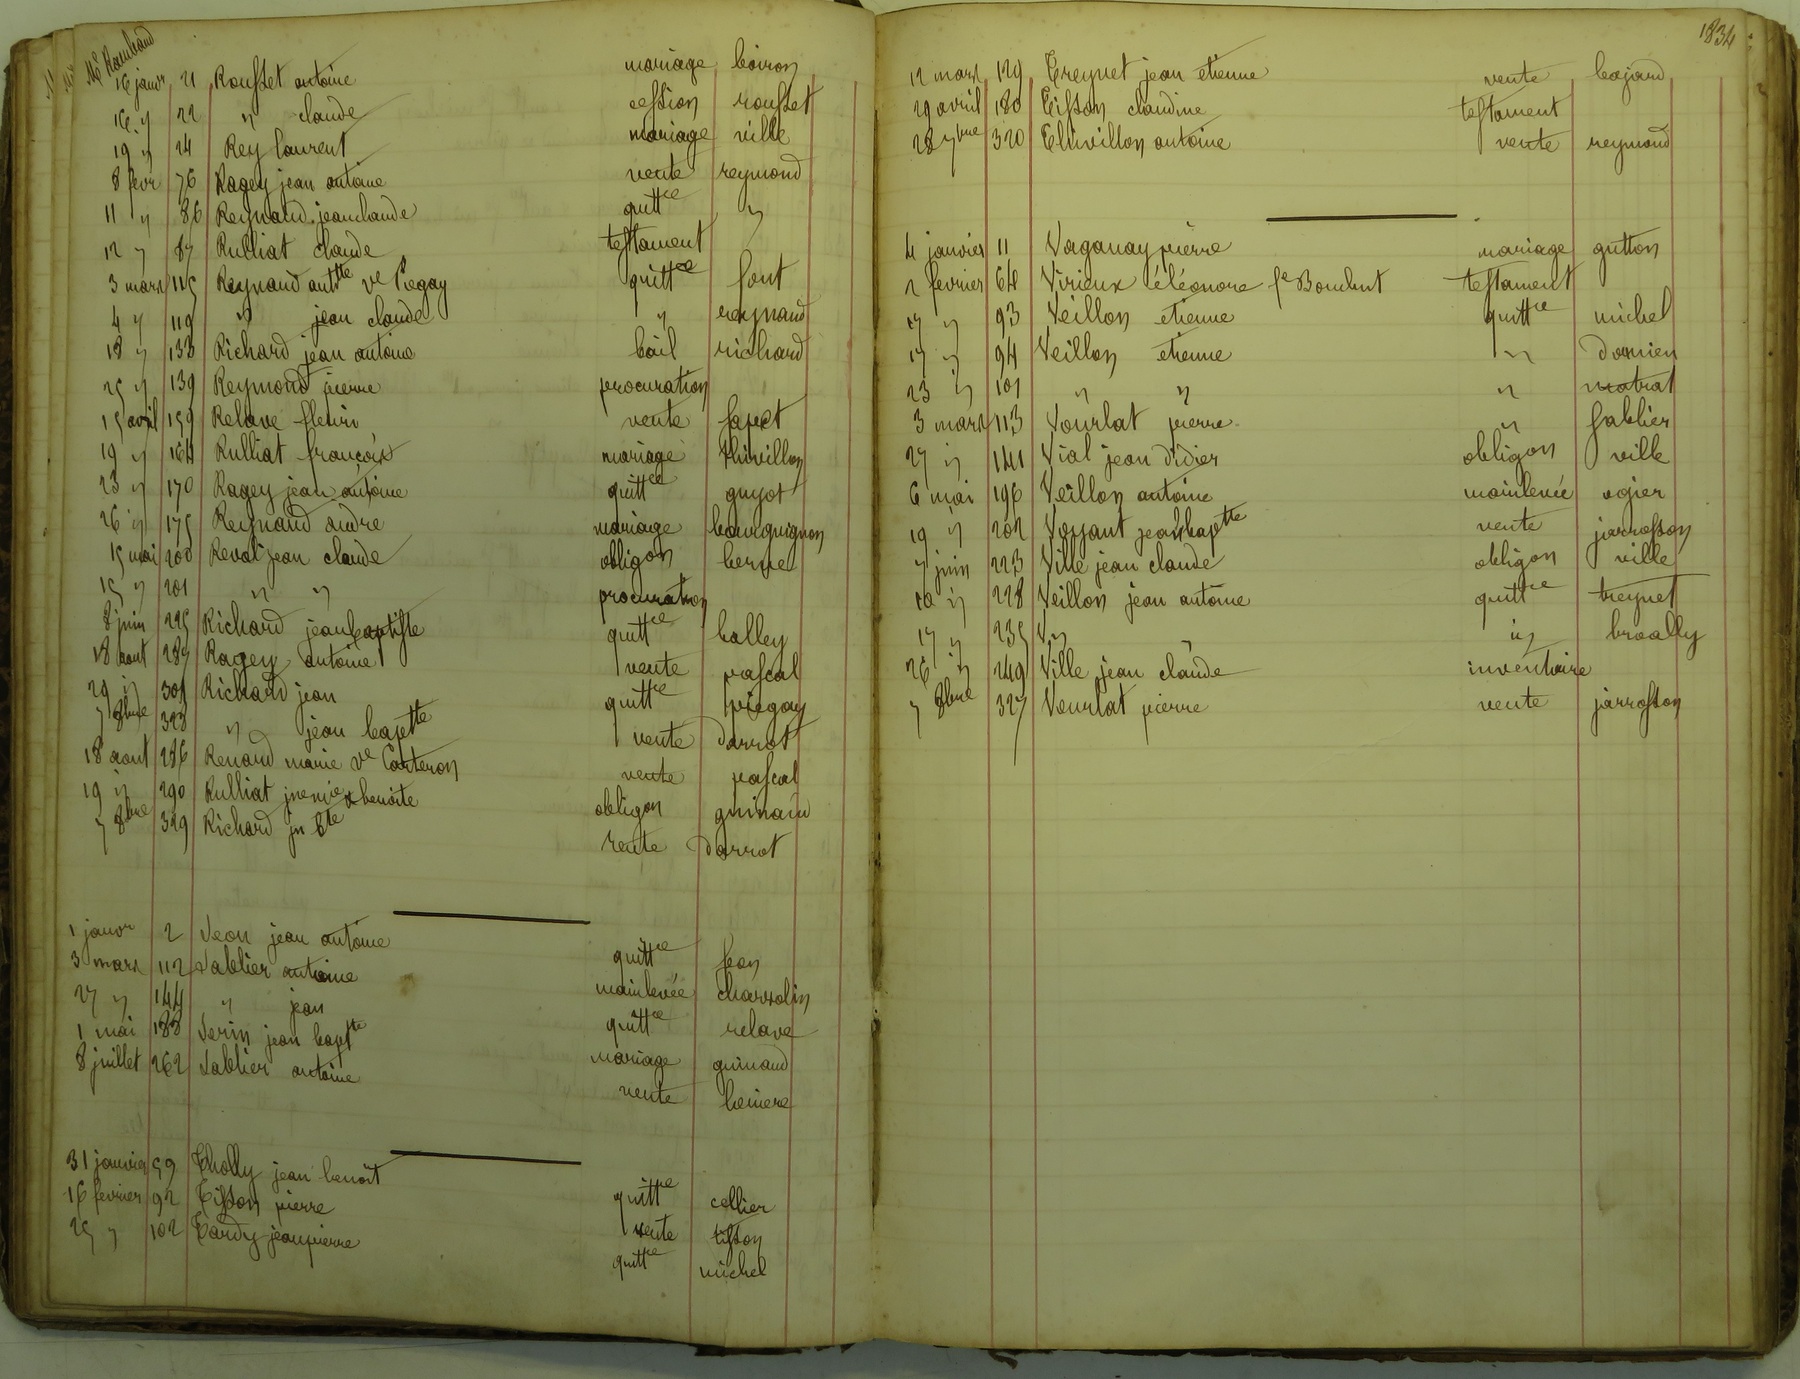 Me Rambaud
16 janvr 21 Rousset antoine mariage boiron
16 " 22 " claude cession rousset
19 " 24 Rey laurent mariage ville
8 fevr 76 Ragey jean antoine vente reymond
11 " 86 Reynaud jeanclaude quittce "
12 " 87 Rulliat claude testament
3 mars 115 Reynaud anttte ve Piegay quittce font
4 " 119 " jean claude " reynaud
18 " 133 Richard jean antoine bail richard
25 " 139 Reymond pierre procuration
15 avril 159 Relave fleuri vente fayet
19 " 164 Rulliat françois mariage thivillon
23 " 170 Ragey jean antoine quittce guyot
26 " 175 Reynaud andré mariage bourguignon
15 mai 200 Revol jean claude obligon berne
15 " 201 " " procuration
8 juin 225 Richard jean baptiste quittce balley
18 aout 287 Ragey antoine vente pascal
29 " 301 Richard jean quittce piegay
7 8bre 328 " jean baptte vente darrot
18 aout 286 Renard marie ve Conteron vente pascal
19 " 290 Rulliat benoite obligon guinand
7 8bre 329 Richard jn Bte vente Darrot
1 janvr 2 Seon jean antoine quittce seon
3 mars 112 Sablier antoine mainlevée charrolin
27 " 144 " jean quittce relave
1 mai 188 Serin jean baptte mariage guinand
8 juillet 262 Sablier antoine vente
31 janvier 59 Tholly jean benoit quittce cellier
16 fevrier 92 Tisson pierre vente tisson
25 " 102 Tardy jeanpierre quittce michel
1834
12 mars 129 Treynet jean etienne vente bajard
29 avril 180 Tisson claudine testament
28 7bre 320 Thivillon antoine vente reymond
4 janvier 11 Vaganay pierre mariage gutton
2 fevrier 64 Virieux éléonore fe testament
17 " 93 Veillon etienne quittce michel
17 " 94 Veillon etienne "
23 " 101 " " " matrat
3 mars 113 Vourlat pierre " Sablier
27 " 141 Vial jean didier obligon ville
6 mai 196 Veillon antoine mainlevée ogier
19 " 202 Voyant jeanbaptte vente jarrosson
7 juin 223 Ville jean claude obligon ville
10 " 228 Veillon jean antoine quittce treynet
17 " 235 V. " " broally
26 " 249 Ville jean claude inventaire
7 8bre 327 Vourlat pierre vente jarrosson